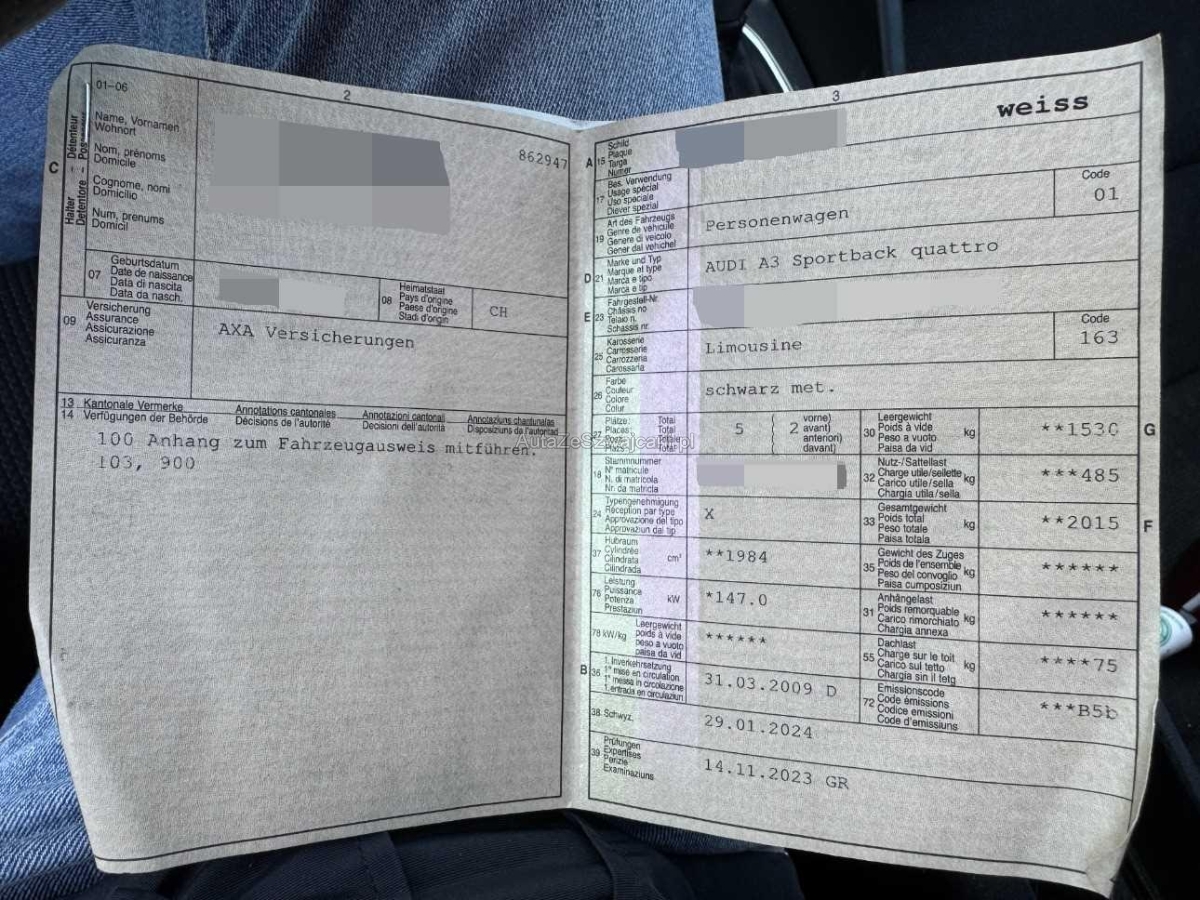 01-06
2
C
Halter - Détenteur
Detentore - Possessur
Name, Vornamen
Wohnort
Nom, prénoms
Domicile
Cognome, nomi
Domicilio
Num, prenums
Domicil
862947
07
Geburtsdatum
Date de naissance
Data di nascita
Data da nasch.
08
Heimatstaat
Pays d'origine
Paese d'origine
Stadi d'origin
CH
09
Versicherung
Assurance
Assicurazione
Assicuranza
AXA Versicherungen
13 Kantonale Vermerke Annotations cantonales Annotazioni cantonali Annotaziuns chantunalas
14 Verfügungen der Behörde Décisions de l'autorité Decisioni dell'autorità Disposiziuns da l'autoritad
100 Anhang zum Fahrzeugausweis mitführen.
103, 900
AutazeSzwajcarii.pl
3
weiss
A 15
Schild
Plaque
Targa
Numer
17
Bes. Verwendung
Usage spécial
Uso speciale
Diever spezial
Code
01
19
Art des Fahrzeugs
Genre de véhicule
Genere di veicolo
Gener dal vehichel
Personenwagen
D 21
Marke und Typ
Marque et type
Marca e tipo
Marca e tip
AUDI A3 Sportback quattro
E 23
Fahrgestell-Nr.
Châssis no
Telaio n.
Schassis nr.
25
Karosserie
Carrosserie
Carrozzeria
Carossaria
Limousine
Code
163
26
Farbe
Couleur
Colore
Colur
schwarz met.
27
Plätze: Total
Places: Total
Posti: Totale
Plazs: Total
5
( 2
vorne)
avant)
anteriori)
davant)
30
Leergewicht
Poids à vide
Peso a vuoto
Paisa da vid
kg
**1530
G
18
Stammnummer
N° matricule
N. di matricola
Nr. da matricla
32
Nutz-/Sattellast
Charge utile/sellette
Carico utile/sella
Chargia utila/sella
kg
***485
24
Typengenehmigung
Réception par type
Approvazione del tipo
Approvaziun dal tip
X
33
Gesamtgewicht
Poids total
Peso totale
Paisa totala
kg
**2015
F
37
Hubraum
Cylindrée
Cilindrata
Cilindrada
cm³
**1984
35
Gewicht des Zuges
Poids de l'ensemble
Peso del convoglio
Paisa cumposiziun
kg
******
76
Leistung
Puissance
Potenza
Prestaziun
kW
*147.0
31
Anhängelast
Poids remorquable
Carico rimorchiato
Chargia annexa
kg
******
78 kW/kg
Leergewicht
poids à vide
peso a vuoto
paisa da vid
******
55
Dachlast
Charge sur le toit
Carico sul tetto
Chargia sin il tetg
kg
****75
B 36
1. Inverkehrsetzung
1re mise en circulation
1a messa in circolazione
1. entrada en circulaziun
31.03.2009 D
72
Emissionscode
Code émissions
Codice emissioni
Code d'emissiuns
***B5b
38. Schwyz.
29.01.2024
39
Prüfungen
Expertises
Perizie
Examinaziuns
14.11.2023 GR